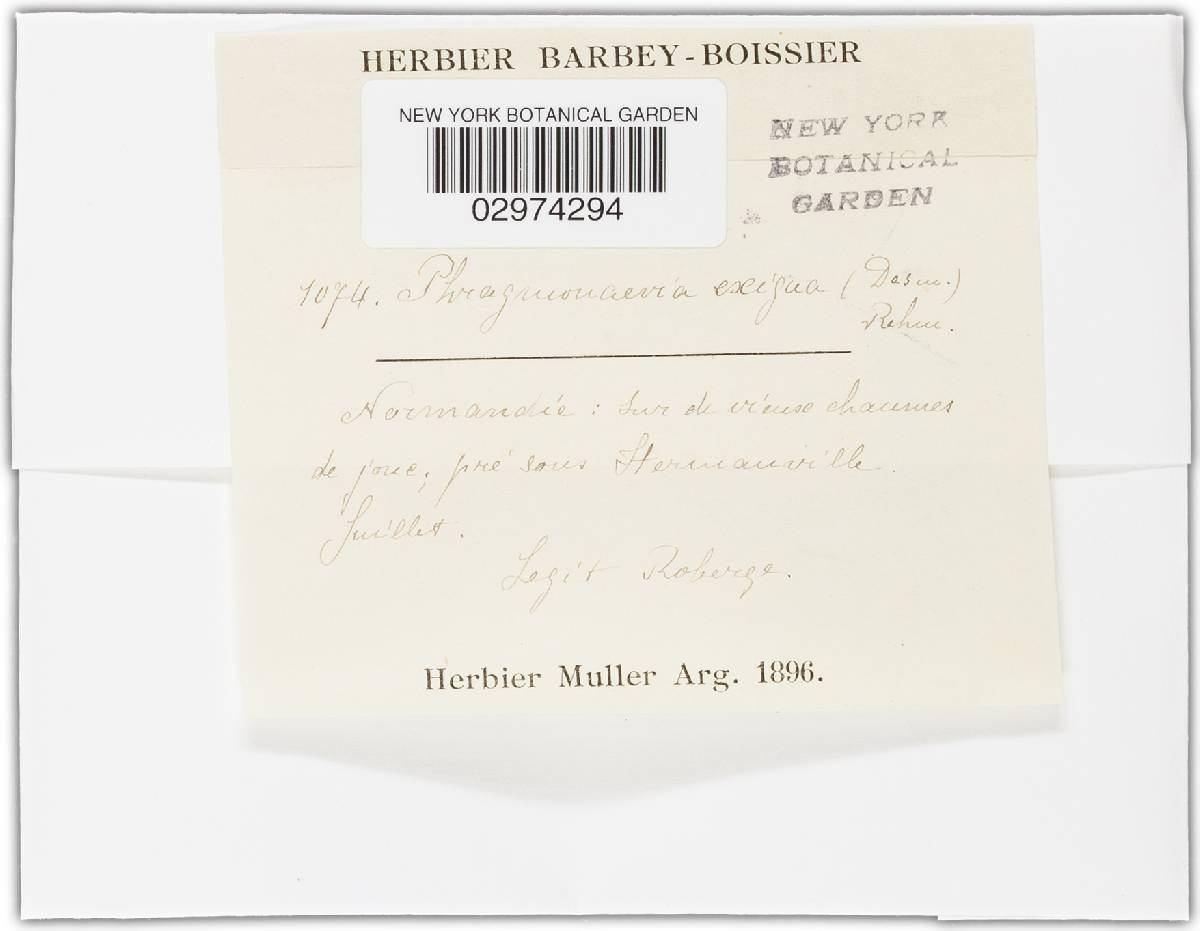 HERBIER BARBEY-BOISSIER
NEW YORK BOTANICAL GARDEN
02974294
NEW YORK
BOTANICAL
GARDEN
1074. Phragmonaevia exigua (Desm.)
Rehm.
Normandie : sur de vieux chaumes
de jonc, pré sous Hermanville.
Juillet.
Legit Roberge.
Herbier Muller Arg. 1896.